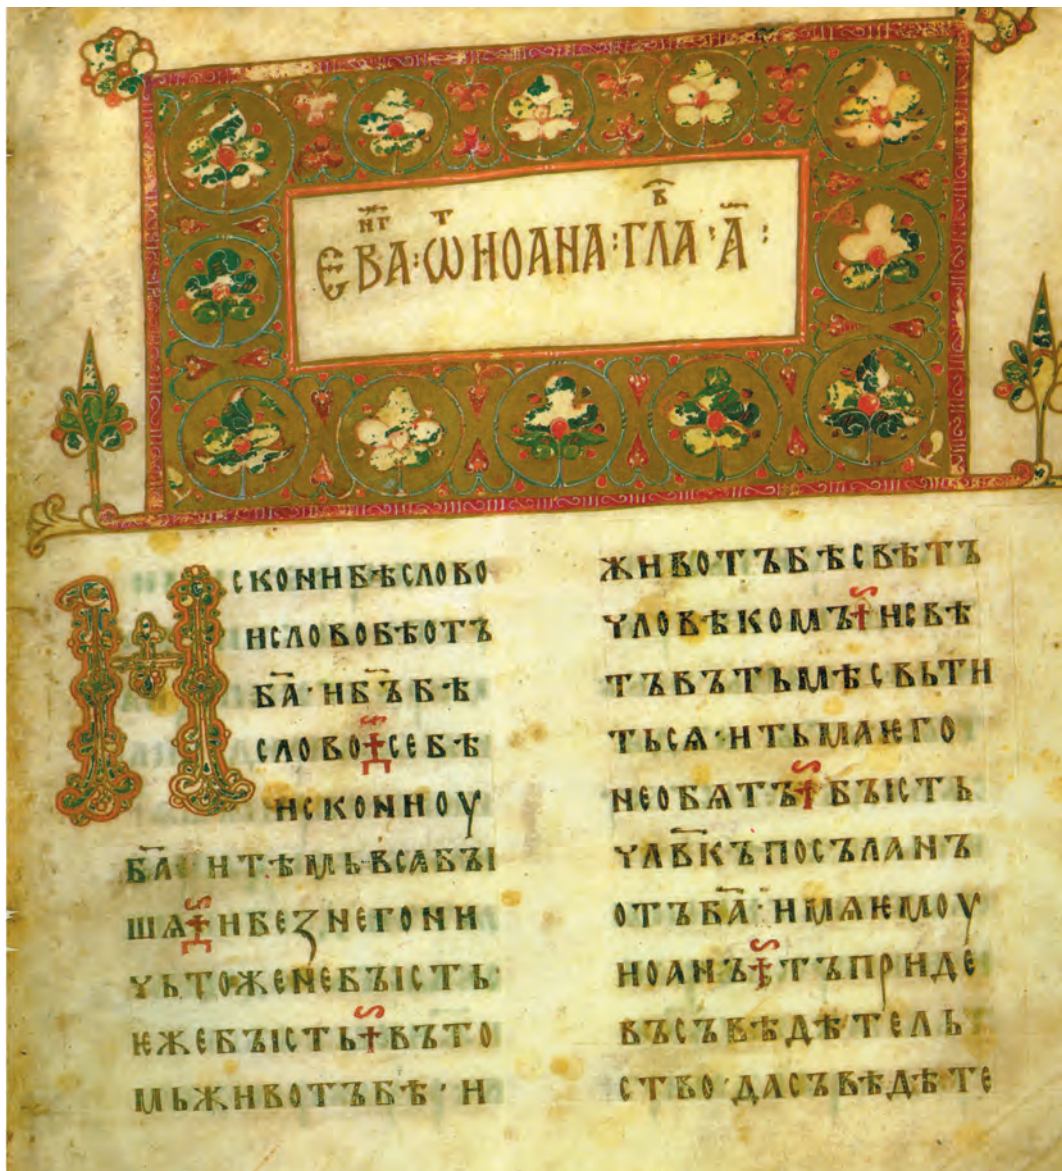 ЄВА҃НГ : ѠТ ИОАНА : ГЛАВ · А҃ :
ИСКОНИБѢСЛОВО
ИСЛОВОБѢОТЪ
БА҃ · ИБЪ҃БѢ
СЛОВО СЕБѢ
ИСКОНИОУ
БА҃ ИТѢМЬВСѦБЪІ
ШѦ ИБЕꙁНЕГОНИ
ЧЬТОЖЕНЕБЪІСТЬ·
ѤЖЕБЪІСТЬ ВЪТО
МЬЖИВОТЪБѢ · И
ЖИВОТЪБѢСВѢТЪ
ЧЛОВѢКОМЪ ИСВѢ
ТЪВЪТЬМѢСВЬТИ
ТЬСѦ · ИТЬМАѤГО
НЕОБѦТЪ БЪІСТЬ
ЧЛВ҃КЪПОСЪЛАНЪ
ОТЪБА҃ · ИМѦѤМОУ
ИОАНЪ ТЪПРИДЕ
ВЪСЪВѢДѢТЕЛЬ
СТВО · ДАСЪВѢДѢТЕ